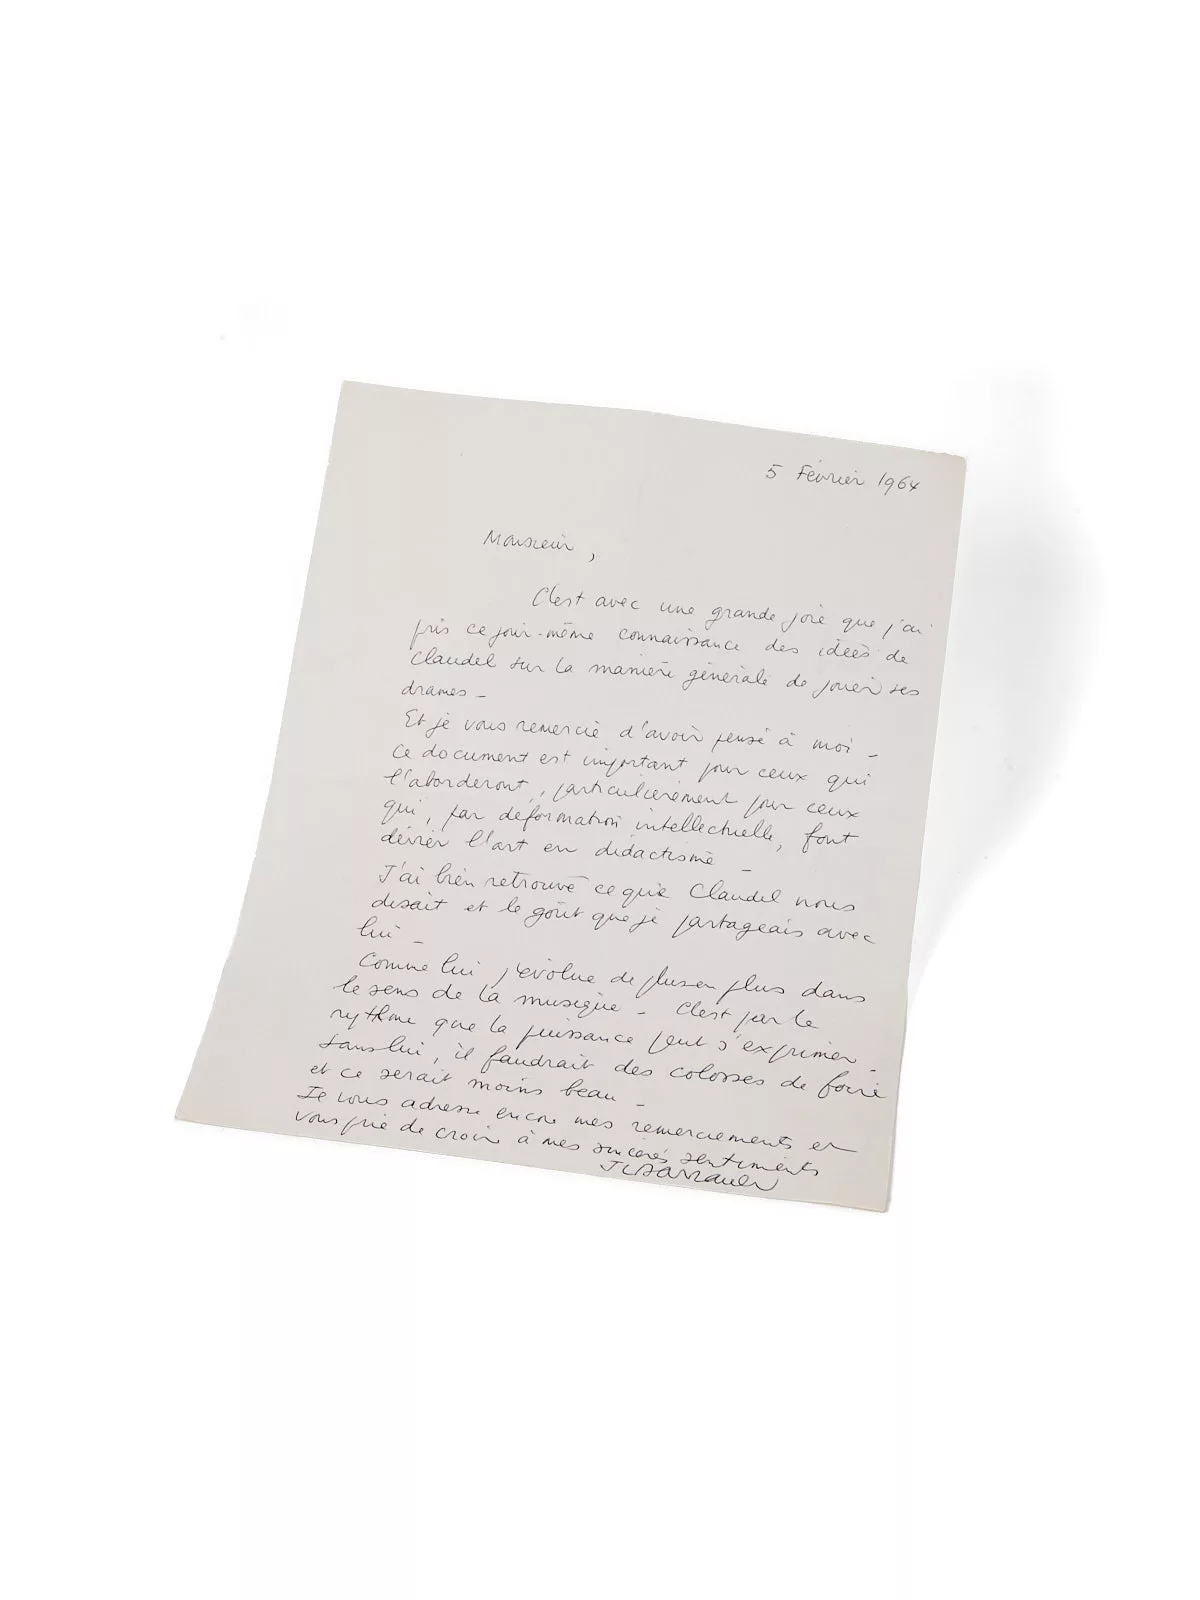 5 Février 1964
Monsieur,
C'est avec une grande joie que j'ai
pris ce jour-même connaissance des idées de
Claudel sur la manière générale de jouer ses
drames -
Et je vous remercie d'avoir pensé à moi -
Ce document est important pour ceux qui
l'aborderont, particulièrement pour ceux
qui, par déformation intellectuelle, font
dévier l'art en didactisme -
J'ai bien retrouvé ce que Claudel nous
disait et le goût que je partageais avec
lui -
Comme lui j'évolue de plus en plus dans
le sens de la musique - C'est par le
rythme que la puissance peut s'exprimer -
sans lui, il faudrait des colosses de foire
et ce serait moins beau -
Je vous adresse encore mes remerciements et
vous prie de croire à mes sincères sentiments
JLBarrault